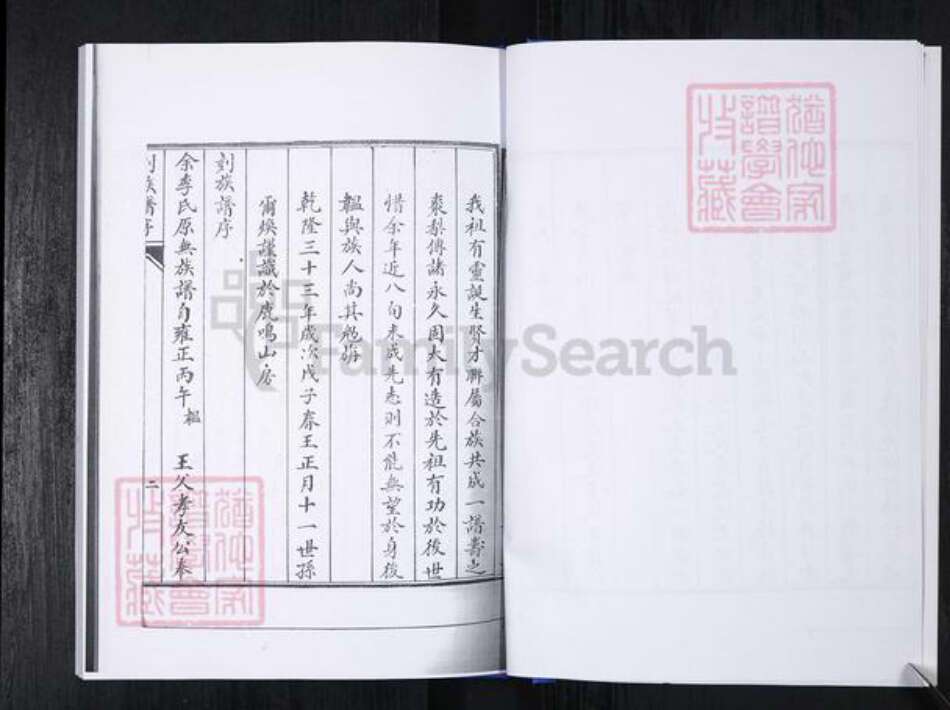 我祖有靈誕生賢才聯屬合族共成一譜壽之
棗梨傳諸永久固大有造於先祖有功於後世
惜余年近八旬未成先志則不能無望於身後
韞與族人尚其勉旃
乾隆三十三年歲次戊子春王正月十一世孫
爾煥謹識於鹿鳴山房
刻族譜序
余李氏原無族譜自雍正丙午韞 王父孝友公奉
刻族譜序
二
猶他家
譜學會
收藏
猶他家
譜學會
收藏
FamilySearch